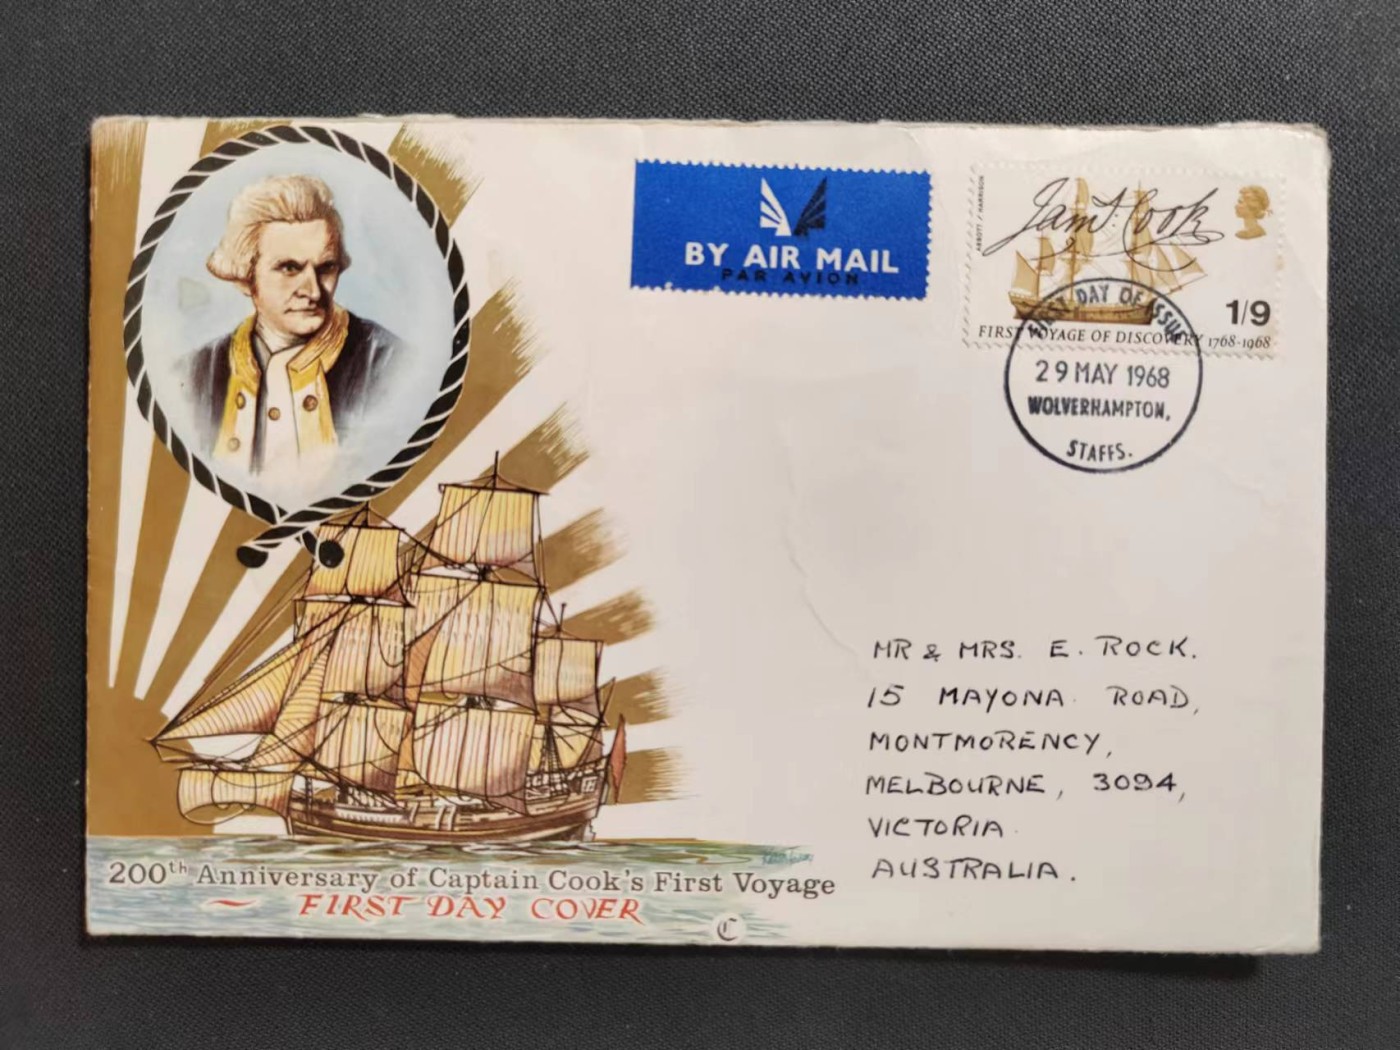 BY AIR MAIL
PAR AVION
ABBOTT / HARRISON
Jam.s Cook
1/9
FIRST VOYAGE OF DISCOVERY 1768·1968
FIRST DAY OF ISSUE
29 MAY 1968
WOLVERHAMPTON,
STAFFS.
MR & MRS. E. ROCK.
15 MAYONA ROAD,
MONTMORENCY,
MELBOURNE, 3094,
VICTORIA
AUSTRALIA.
200th Anniversary of Captain Cook's First Voyage
~ FIRST DAY COVER
C